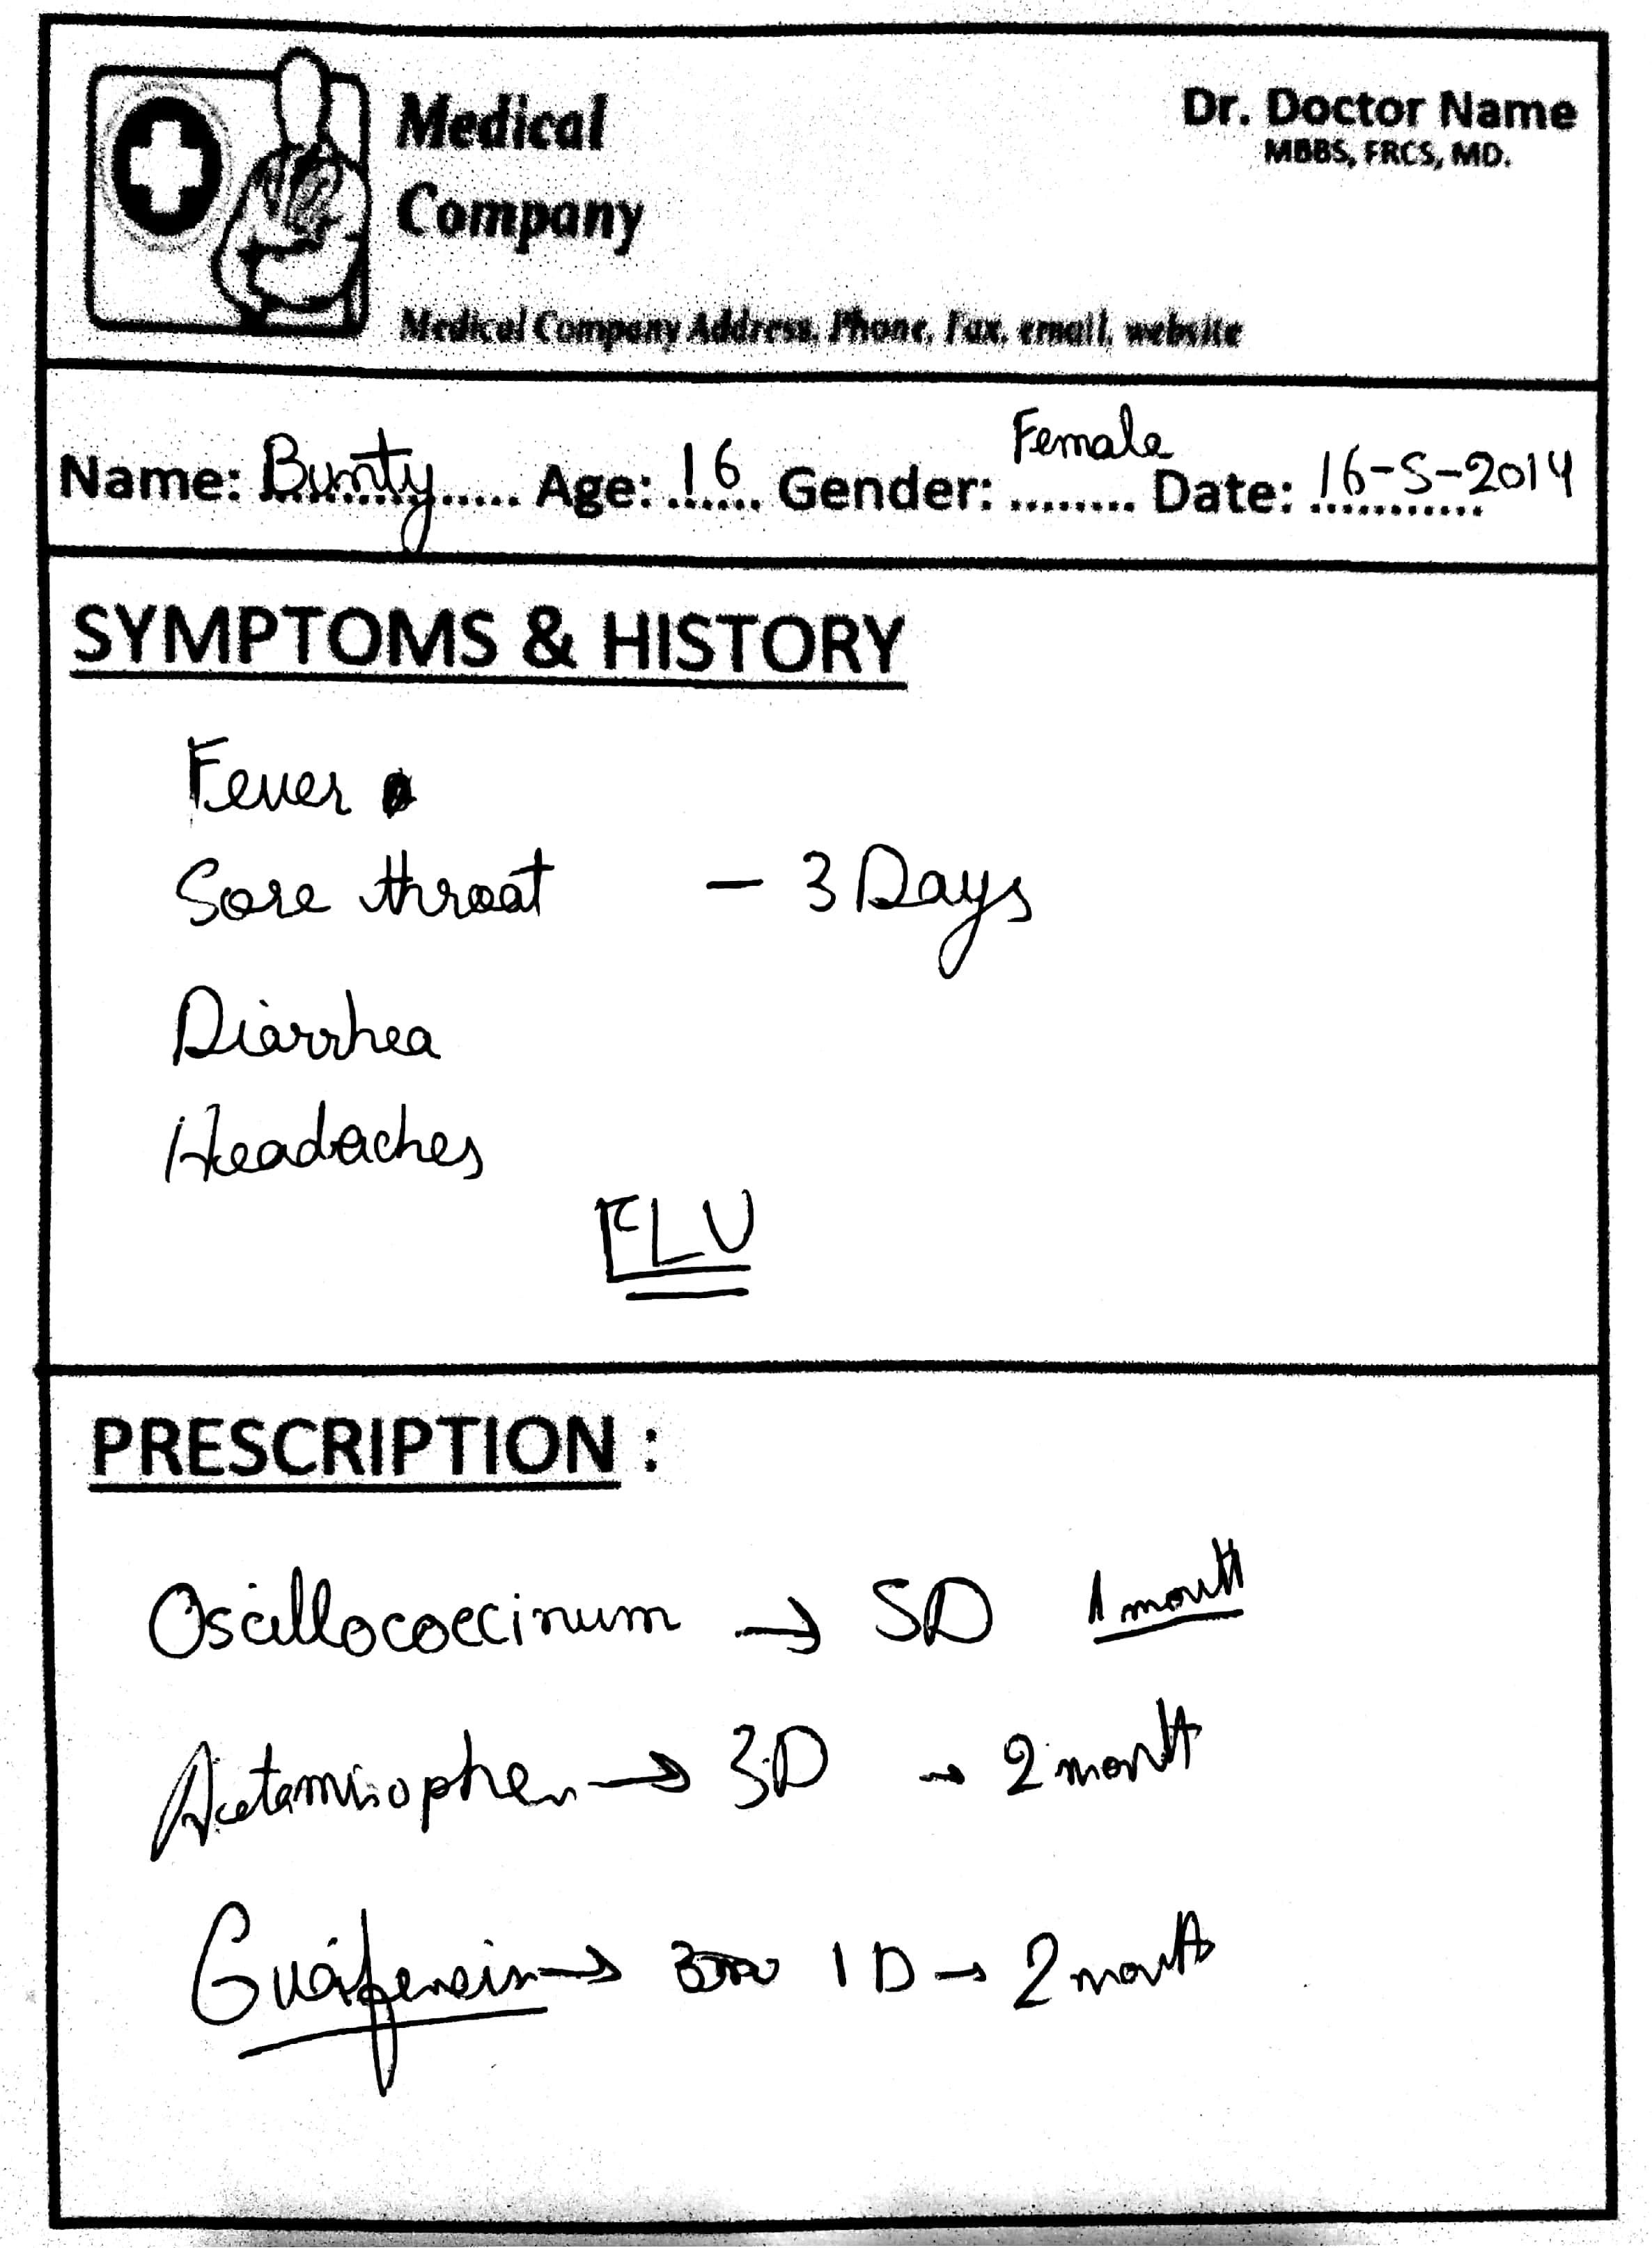 Medical
Company
Dr. Doctor Name
MBBS, FRCS, MD.
Medical Company Address, Phone, Fax, email, website
Name: Bunty Age: 16 Gender: Female Date: 16-5-2014
SYMPTOMS & HISTORY
Fever
Sore throat - 3 Days
Diarrhea
Headaches
FLU
PRESCRIPTION :
Oscillococcinum → 5D 1 month
Acetaminophen → 3D → 2 month
Guaifenesin → 1D → 2 month